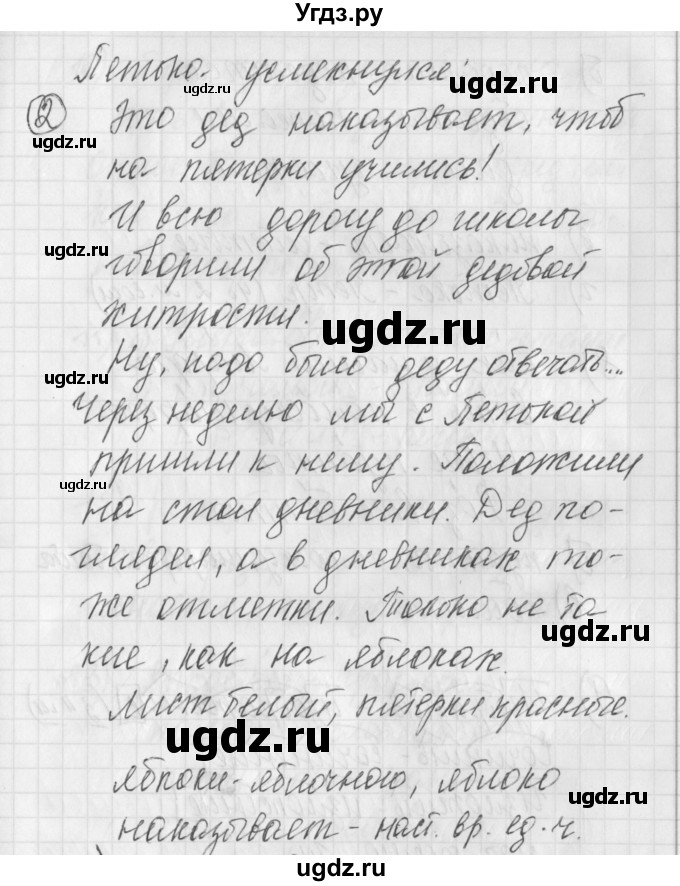 Угдз.ру
Петька усмехнулся:
2 Это дед наказывает, чтоб
на пятерки учились!
И всю дорогу до школы
говорили об этой дедовой
хитрости.
Ну, надо было деду отвечать...
Через неделю мы с Петькой
пришли к нему. Положили
на стол дневники. Дед по-
глядел, а в дневниках то-
же отметки. Только не та
кие, как на яблоках.
Лист белый, пятерки красные.
яблоки - яблочного, яблоко
наказывает - наст. вр. ед. ч.
ugdz.ru
ugdz.ru
ugdz.ru
ugdz.ru
ugdz.ru
ugdz.ru
ugdz.ru
ugdz.ru
ugdz.ru